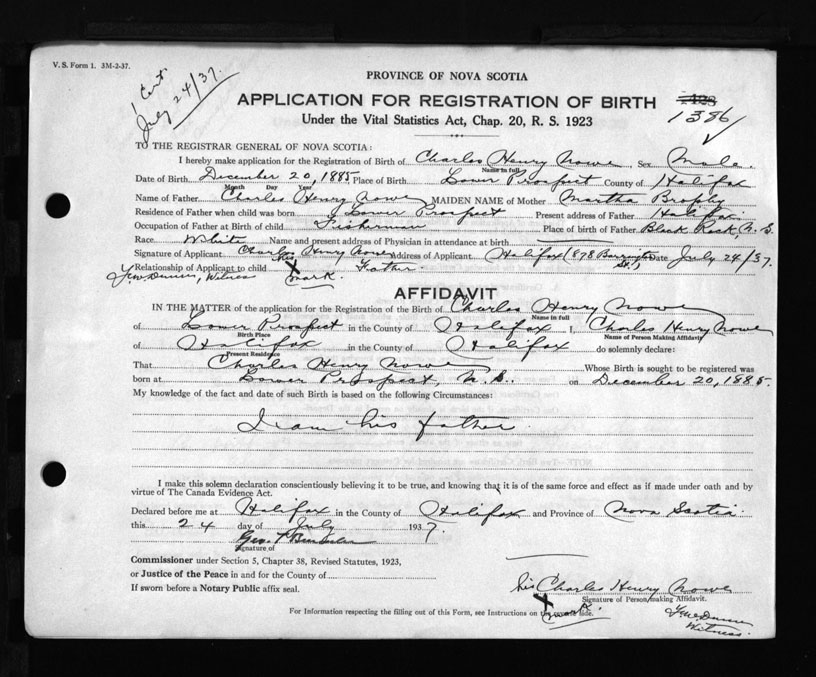 V. S. Form 1. 3M-2-37.
1 Cert.
July 24/37.
PROVINCE OF NOVA SCOTIA
APPLICATION FOR REGISTRATION OF BIRTH
1386
Under the Vital Statistics Act, Chap. 20, R. S. 1923
TO THE REGISTRAR GENERAL OF NOVA SCOTIA:
I hereby make application for the Registration of Birth of Charles Henry Nowe, Sex Male
Name in full
Date of Birth December 20, 1885, Place of Birth Lower Prospect County of Halifax
Month Day Year
Name of Father Charles Henry Nowe MAIDEN NAME of Mother Martha Brophy
Residence of Father when child was born Lower Prospect Present address of Father Halifax
Occupation of Father at Birth of child Fisherman Place of birth of Father Black Rock, N.S.
Race White Name and present address of Physician in attendance at birth
Signature of Applicant Charles Henry Nowe Address of Applicant Halifax (878 Barrington St.) Date July 24/37.
his X mark.
Relationship of Applicant to child Father.
Witness
AFFIDAVIT
IN THE MATTER of the application for the Registration of the Birth of Charles Henry Nowe
Name in full
of Lower Prospect in the County of Halifax I, Charles Henry Nowe
Birth Place Name of Person Making Affidavit
of Halifax in the County of Halifax do solemnly declare:
Present Residence
That Charles Henry Nowe Whose Birth is sought to be registered was
born at Lower Prospect, N.S. on December 20, 1885.
My knowledge of the fact and date of such Birth is based on the following Circumstances:
I am his father.
I make this solemn declaration conscientiously believing it to be true, and knowing that it is of the same force and effect as if made under oath and by
virtue of The Canada Evidence Act.
Declared before me at Halifax in the County of Halifax and Province of Nova Scotia
this 24 day of July 1937.
Geo. T
Signature of
Commissioner under Section 5, Chapter 38, Revised Statutes, 1923,
or Justice of the Peace in and for the County of
If sworn before a Notary Public affix seal.
his Charles Henry Nowe
X Signature of Person making Affidavit.
mark.
For Information respecting the filling out of this Form, see Instructions on the reverse side.
Witness.